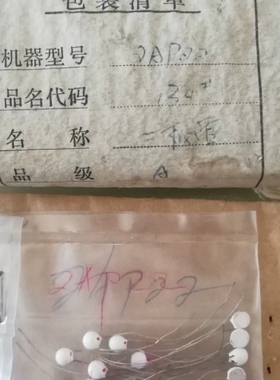 包装清单
机器型号 2AP22
品名代码
名 称 二极管
品 级 A
2AP22